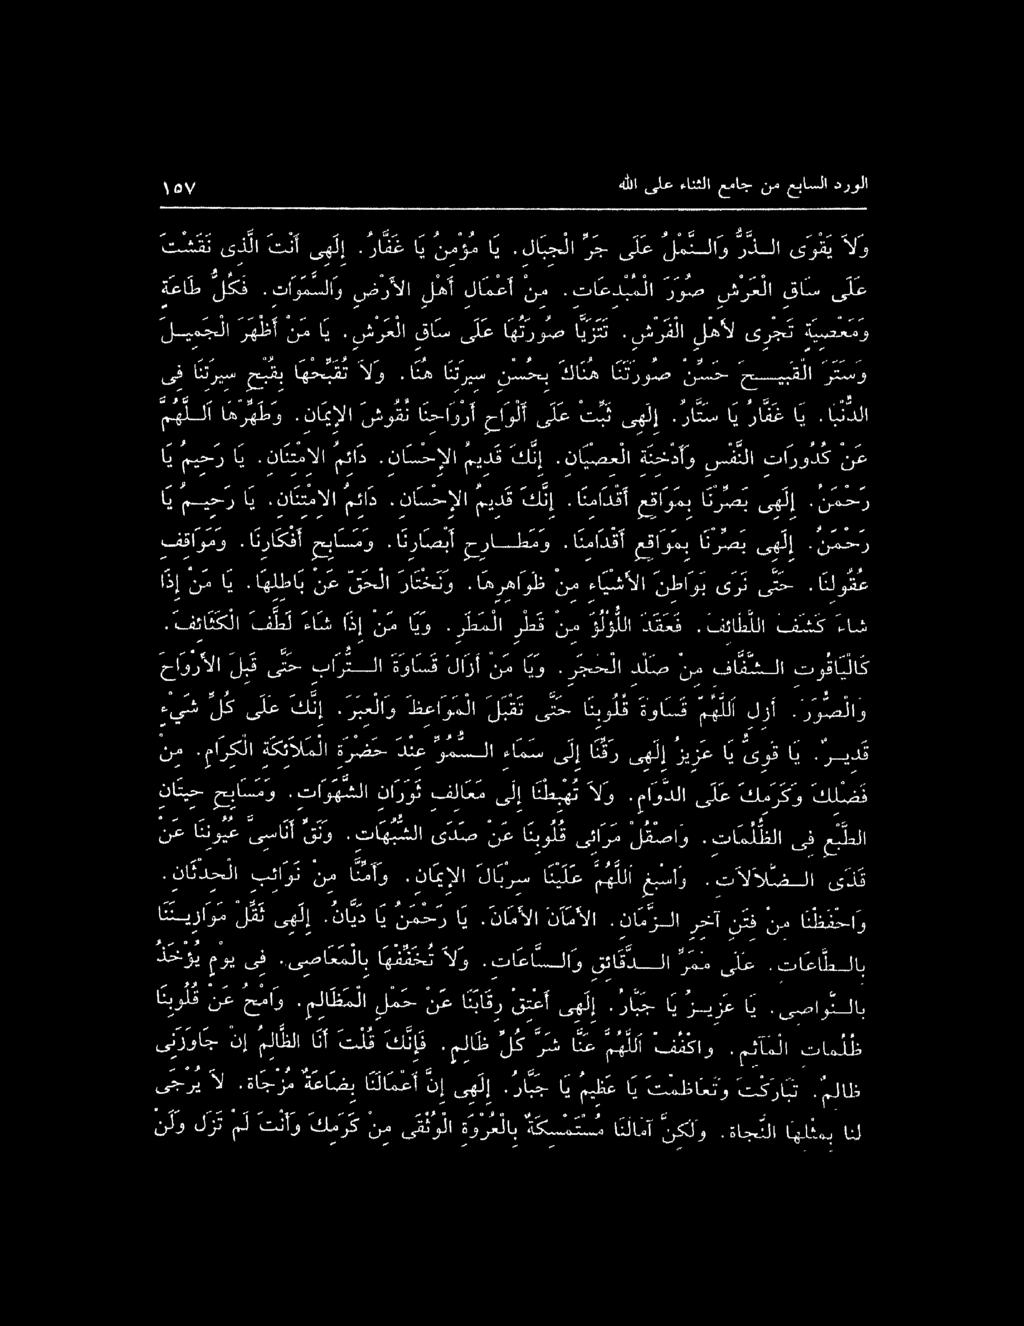 الورد السابع من جامع الثناء على الله ١٥٧
وَلاَ يَقْوَى الـذَّرُّ وَالـنَّمْلُ عَلَى جَرِّ الْجِبَالِ. يَا مُؤْمِنُ يَا غَفَّارُ. إِلَهِى أَنْتَ الَّذِى نَقَشْتَ
عَلَى سَاقِ الْعَرْشِ صُوَرَ الْمُبْدِعَاتِ. مِنْ أَعْمَالِ أَهْلِ الأَرْضِ وَالسَّمَوَاتِ. فَكُلُّ طَاعَةٍ
وَمَعْصِيَةٍ تَجْرِى لأَهْلِ الْفَرْشِ. تَتَزَيَّا صُورَتُهَا عَلَى سَاقِ الْعَرْشِ. يَا مَنْ أَظْهَرَ الْجَمِيـلَ
وَسَتَرَ الْقَبِيـــحَ حَسِّنْ صُورَتَنَا هُنَاكَ بِحُسْنِ سِيرَتِنَا هُنَا. وَلاَ تُقَبِّحْهَا بِقُبْحِ سِيرَتِنَا فِى
الدُّنْيَا. يَا غَفَّارُ يَا سَتَّارُ. إِلَهِى ثَبِّتْ عَلَى أَلْوَاحِ أَرْوَاحِنَا نُقُوشَ الإِيمَانِ. وَطَهِّرْهَا اَلـلَّهُمَّ
عَنْ كُدُورَاتِ النَّفْسِ وَأَدْخِنَةِ الْعِصْيَانِ. إِنَّكَ قَدِيمُ الإِحْسَانِ. دَائِمُ الاِمْتِنَانِ. يَا رَحِيمُ يَا
رَحْمَنُ. إِلَهِى بَصِّرْنَا بِمَوَاقِعِ أَقْدَامِنَا. إِنَّكَ قَدِيمُ الإِحْسَانِ. دَائِمُ الاِمْتِنَانِ. يَا رَحِيـمُ يَا
رَحْمَنُ. إِلَهِى بَصِّرْنَا بِمَوَاقِعِ أَقْدَامِنَا. وَمَطـــارِحِ أَبْصَارِنَا. وَمَسَابِحِ أَفْكَارِنَا. وَمَوَاقِفِ
عُقُولِنَا. حَتَّى نَرَى بَوَاطِنَ الأَشْيَاءِ مِنْ ظَوَاهِرِهَا. وَنَخْتَارَ الْحَقَّ عَنْ بَاطِلِهَا. يَا مَنْ إِذَا
شَاءَ كَشَفَ اللَّطَائِفَ. فَعَقَدَ اللُّؤْلُؤَ مِنْ قَطْرِ الْمَطَرِ. وَيَا مَنْ إِذَا شَاءَ لَطَّفَ الْكَثَائِفَ.
كَالْيَاقُوتِ الـشَّفَّافِ مِنْ صَلْدِ الْحَجَرِ. وَيَا مَنْ أَزَالَ قَسَاوَةَ الـــتُّرَابِ حَتَّى قَبِلَ الأَرْوَاحَ
وَالصُّوَرَ. أَزِلِ اَللَّهُمَّ قَسَاوَةَ قُلُوبِنَا حَتَّى تَقْبَلَ الْمَوَاعِظَ وَالْعِبَرَ. إِنَّكَ عَلَى كُلِّ شَيْءٍ
قَدِيـرٌ. يَا قَوِىُّ يَا عَزِيزُ إِلَهِى رَقِّنَا إِلَى سَمَاءِ الـسُّمُوِّ عِنْدَ حَضْرَةِ الْمَلاَئِكَةِ الْكِرَامِ. مِنْ
فَضْلِكَ وَكَرَمِكَ عَلَى الدَّوَامِ. وَلاَ تُهْبِطْنَا إِلَى مَعَالِفِ ثَوَرَانِ الشَّهَوَاتِ. وَمَسَابِحِ حِيتَانِ
الطَّبْعِ فِى الظُّلُمَاتِ. وَاصْقُلْ مَرَائِى قُلُوبِنَا عَنْ صَدَى الشُّبُهَاتِ. وَنَقِّ أَنَاسِىَّ عُيُونِنَا عَنْ
قَذَى الـضَّلاَلاَتِ. وَأَسْبِغِ اَللَّهُمَّ عَلَيْنَا سِرْبَالَ الإِيمَانِ. وَآمِنَّا مِنْ نَوَائِبِ الْحِدْثَانِ.
وَاحْفَظْنَا مِنْ فِتَنِ آخِرِ الـزَّمَانِ. الأَمَانَ الأَمَانَ. يَا رَحْمَنُ يَا دَيَّانُ. إِلَهِى ثَقِّلْ مَوَازِيـنَنَا
بِالـطَّاعَاتِ. عَلَى مَمَرِّ الـــدَّقَائِقِ وَالـسَّاعَاتِ. وَلاَ تُخَفِّفْهَا بِالْمَعَاصِى. فِى يَوْمٍ يُؤْخَذُ
بِالـنَّوَاصِى. يَا عَزِيـزُ يَا جَبَّارُ. إِلَهِى أَعْتِقْ رِقَابَنَا عَنْ حَمْلِ الْمَظَالِمِ. وَامْحُ عَنْ قُلُوبِنَا
ظُلُمَاتِ الْمَآثِمِ. وَاكْفُفْ اَللَّهُمَّ عَنَّا شَرَّ كُلِّ ظَالِمٍ. فَإِنَّكَ قُلْتَ أَنَا الظَّالِمُ إِنْ جَاوَزَنِى
ظَالِمٌ. تَبَارَكْتَ وَتَعَاظَمْتَ يَا عَظِيمُ يَا جَبَّارُ. إِلَهِى إِنَّ أَعْمَالَنَا بِضَاعَةٌ مُزْجَاةٌ. لاَ يُرْجَى
لَنَا بِمِثْلِهَا النَّجَاةُ. وَلَكِنَّ آمَالَنَا مُسْتَمْسِكَةٌ بِالْعُرْوَةِ الْوُثْقَى مِنْ كَرَمِكَ وَأَنْتَ لَمْ تَزَلْ وَلَنْ